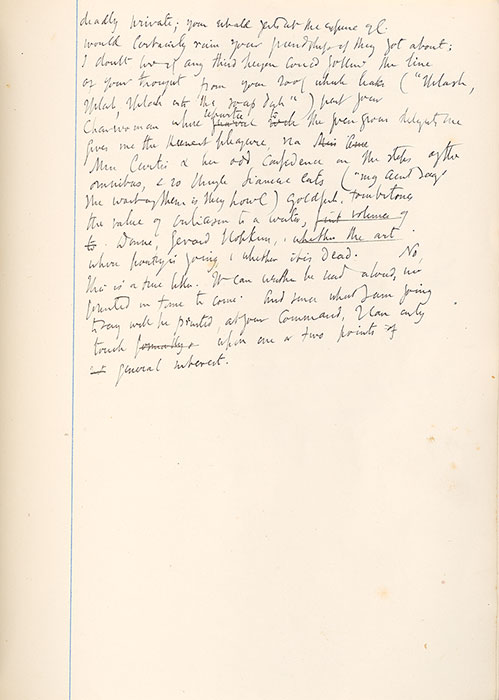 deadly private; your
would certainly ruin your friendships if they got about;
I doubt if any third person could follow the line
of your thought from your roof which leaks ("Splash,
splash, splash into the soap dish") past your
Charwoman whose to the green grocer delights me
gives me the keenest pleasure, via
Mrs Curtis & her odd confidence on the steps of the
omnibus, & so Siamese cats ("my Aunt says
the worst of them is they howl") Goldfish. Tombstones
the value of criticism to a writer,
to. Donne, Gerard Hopkins, , whether the art
where poetry is going, whether it is dead. No,
this is a true letter. It can neither be read aloud, nor
printed in time to come. And since what I am going
to say will be printed, at your command, I can only
touch upon one or two points of
general interest.